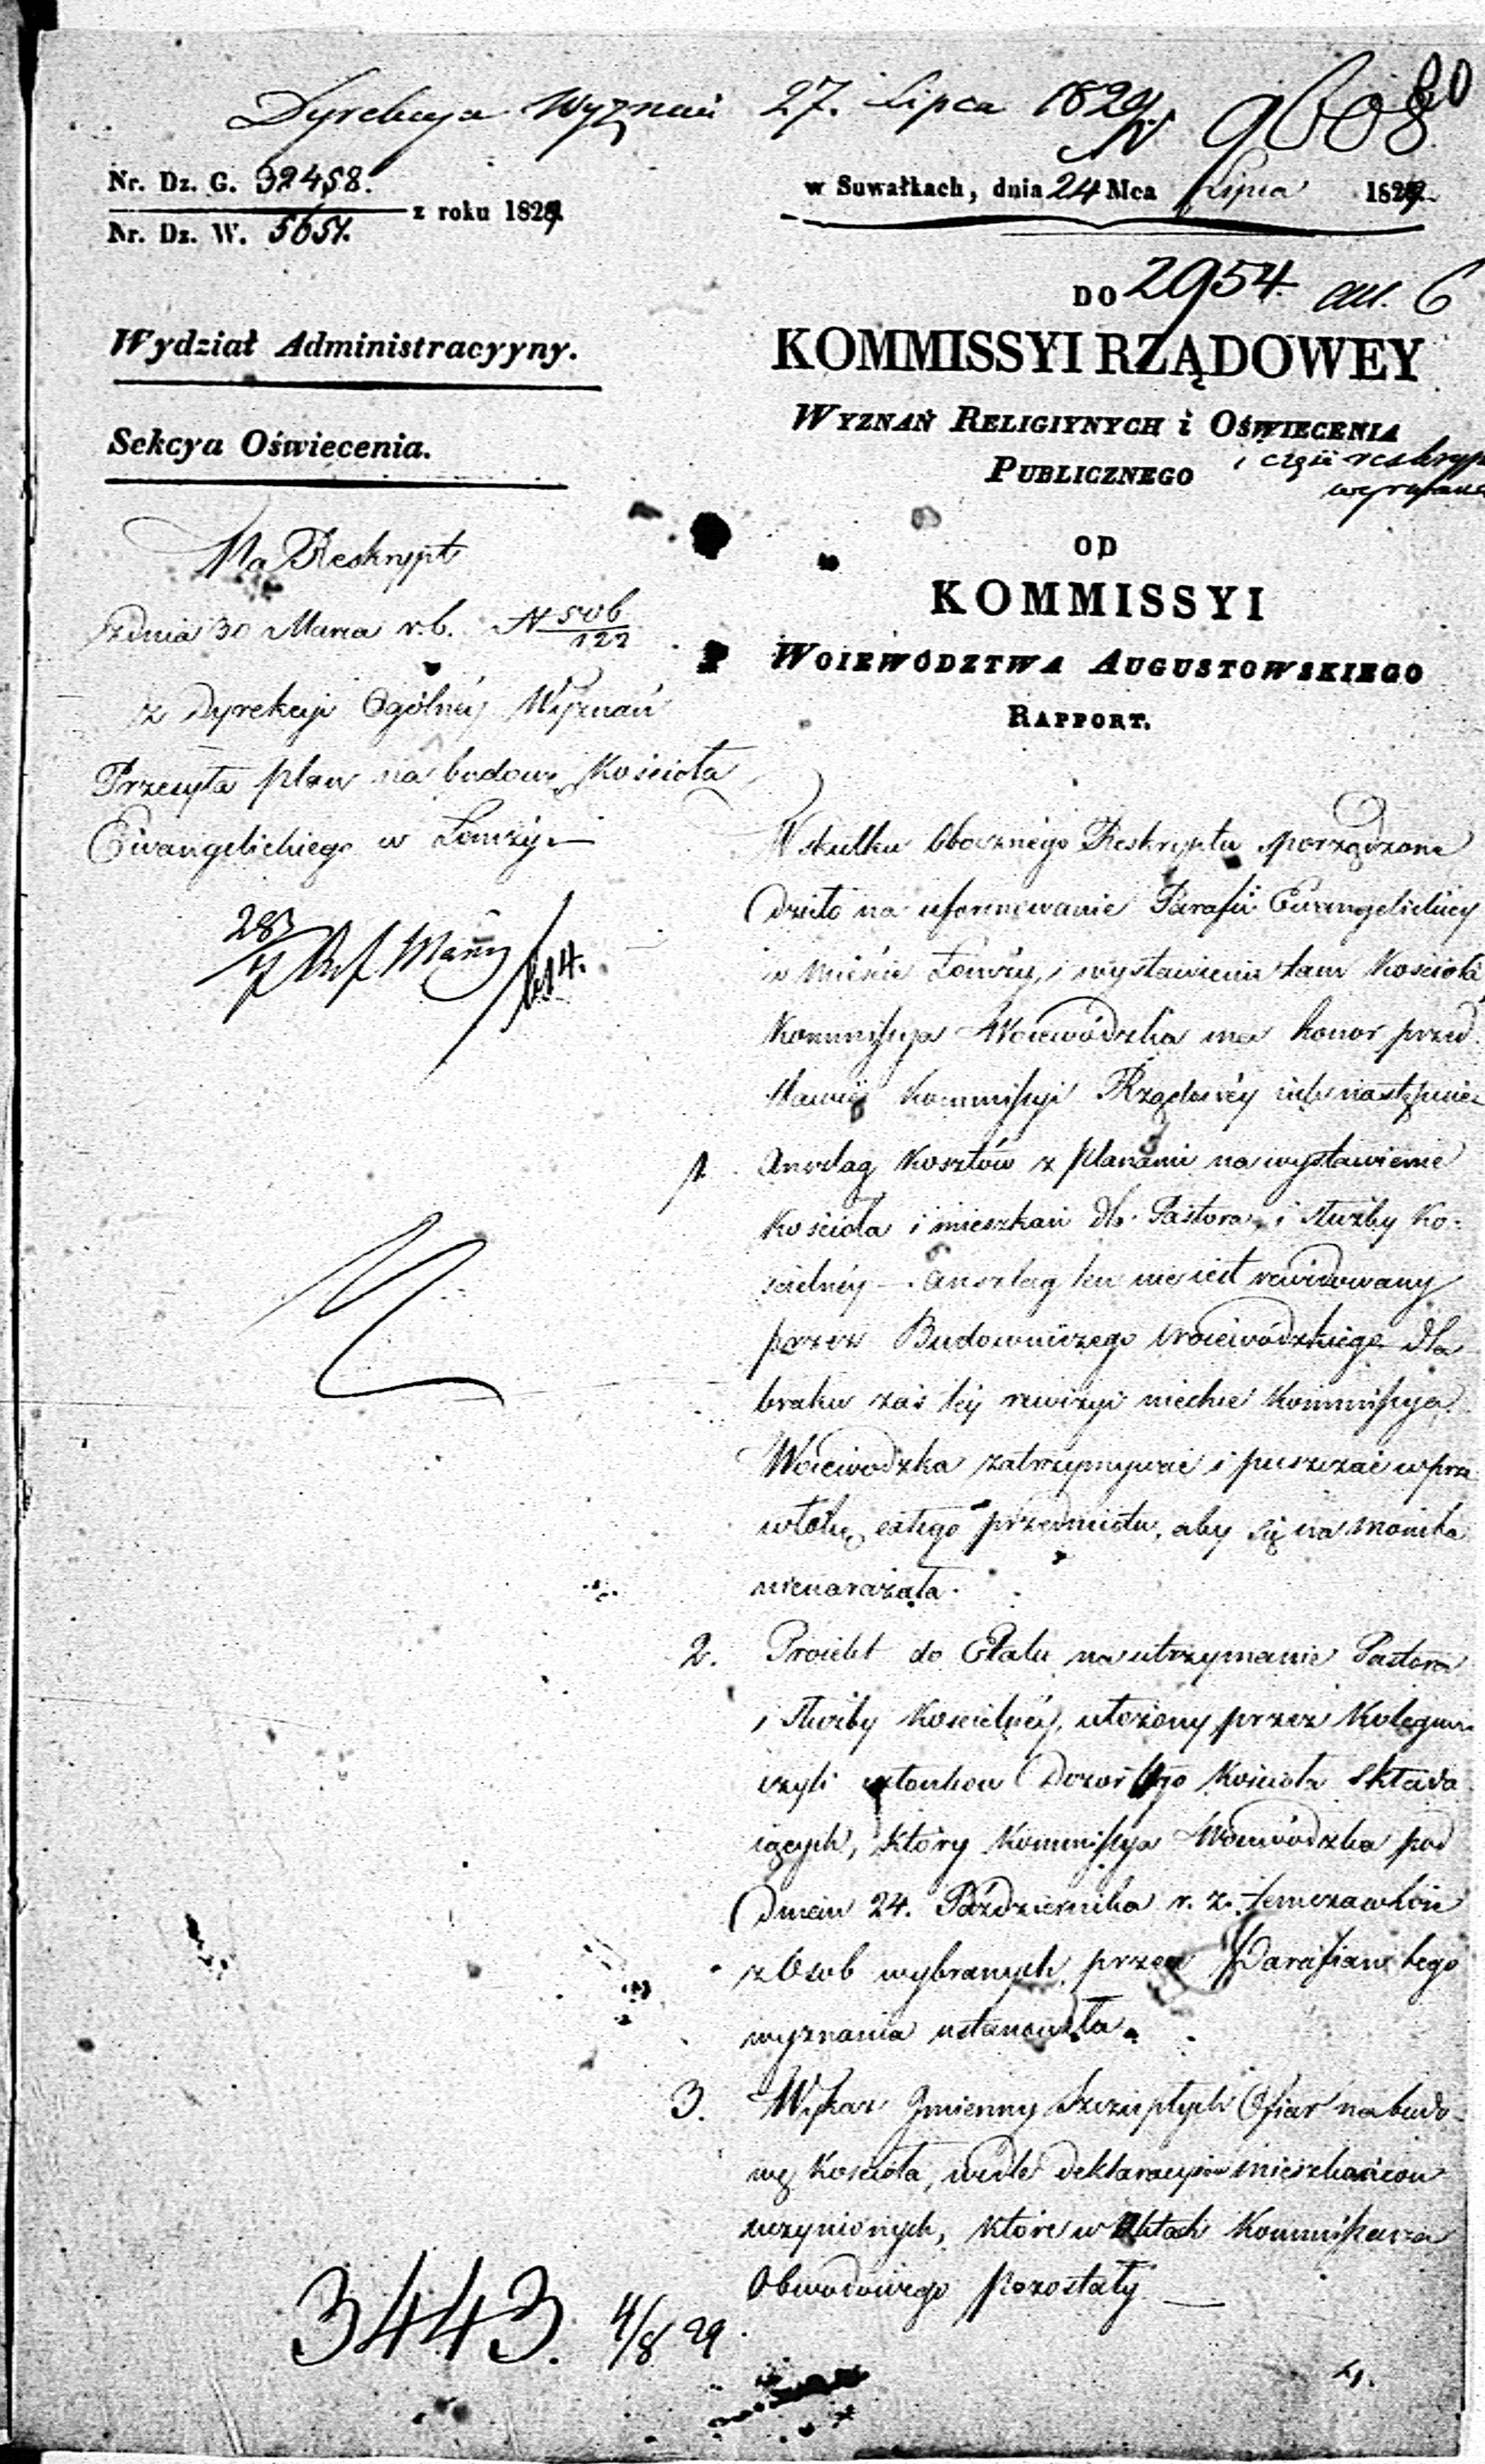 80
Dyrekcya Wyznań 27. Lipca 1829 N 9608
Nr. Dz. G. 32458.
Nr. Dz. W. 5651. z roku 1829
w Suwałkach, dnia 24 Mca Lipca 1829.
DO 2954. 6
Wydział Administracyyny.
KOMMISSYI RZĄDOWEY
Sekcya Oświecenia.
WYZNAŃ RELIGIYNYCH i OŚWIECENIA
PUBLICZNEGO
OD
KOMMISSYI
WOIEWÓDZTWA AUGUSTOWSKIEGO
RAPPORT.
Na Reskrypt
z dnia 30 Marca r.b. N 506/122
z Dyrekcji Ogólnéy Wyznań
Przesyła plan na budowę Kościoła
Ewangelickiego w Łomży.—
W skutku obocznégo Reskryptu sporządzone
dzieło na uformowanie Parafii Ewangelickiey
w Mieście Łomży, i wystawienie tam Kościoła
Kommissya Woiewódzka ma honor przed
stawić Kommissyi Rządowéy iak następuie
1. Anszlag Kosztów z planami na wystawienie
Kościoła i mieszkań dla Pastora, i służby Ko-
scielnéy — Anszlag ten nie iest rewidowany
przez Budowniczego Woiewódzkiego dla
braku zaś téy rewizyi niechce Kommissya
Woiewódzka zatrzymywać i puszczać w prze
włokę całego przedmiotu, aby się na monita
nienarażała.
2. Proiekt do Etatu na utrzymanie Pastora
i służby Kościelnéy, ułożony przez Kolegium
czyli członków Dozór tego Kościoła składa
iących, który Kommissya Woiewódzka pod
dniem 24. Października r. z. tymczasowie
z Osób wybranych przez Parafian tego
wyznania ustanowiła.
3. Wykaz Imienny szczupłych Ofiar na budo-
wę Kościoła, wedle deklaracyiów mieszkańców
uczynionych, które w Aktach Kommissarza
Obwodowego pozostały —
3443. 4/8 29
4.